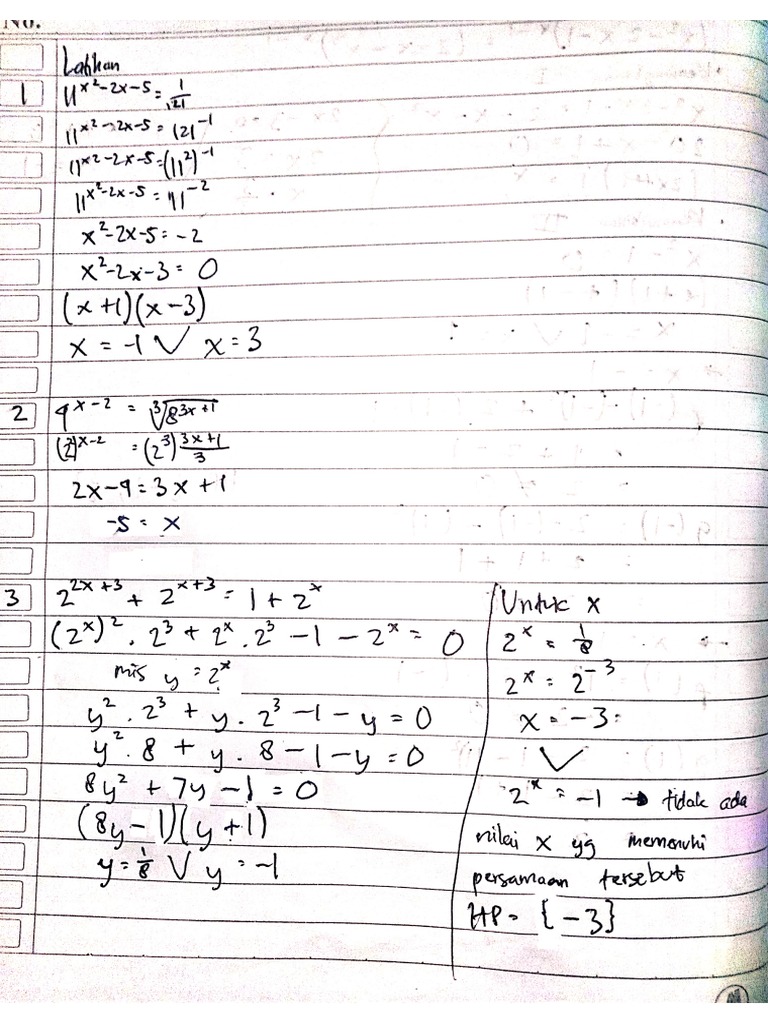 No.
Latihan
1 11^{x²-2x-5} = 1/121
11^{x²-2x-5} = 121^{-1}
11^{x²-2x-5} = (11²)^{-1}
11^{x²-2x-5} = 11^{-2}
x²-2x-5 = -2
x²-2x-3 = 0
(x+1)(x-3)
x = -1 V x = 3
2 4^{x-2} = ∛(8^{3x+1})
(2²)^{x-2} = (2³)^{(3x+1)/3}
2x-4 = 3x+1
-5 = x
3 2^{2x+3} + 2^{x+3} = 1 + 2^x
(2^x)² . 2³ + 2^x . 2³ - 1 - 2^x = 0
mis y = 2^x
y² . 2³ + y . 2³ - 1 - y = 0
y² . 8 + y . 8 - 1 - y = 0
8y² + 7y - 1 = 0
(8y - 1)(y + 1)
y = 1/8 V y = -1
Untuk x
2^x = 1/8
2^x = 2^{-3}
x = -3
V
2^x = -1 → tidak ada
nilai x yg memenuhi
persamaan tersebut
HP = {-3}